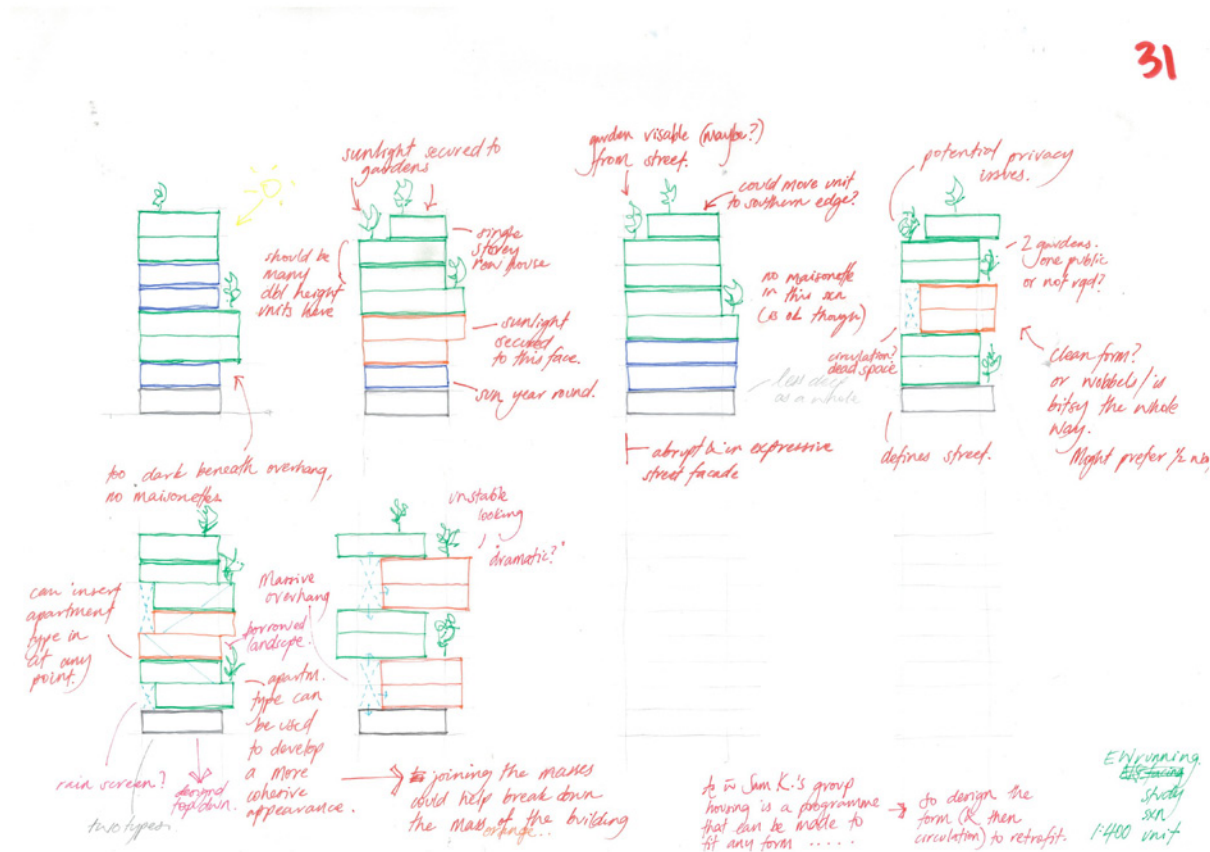 31
sunlight secured to
gardens
should be
many
dbl height
units here
single
storey
row house
sunlight
secured
to this face.
sun year round.
garden visable (maybe?)
from street.
could move unit
to southern edge?
no maisonette
in this sxn
(is ok though)
less deep
as a whole
abrupt & un expressive
street facade
potential privacy
issues.
2 gardens.
one public
or not rqd?
circulation?
dead space
clean form?
or wobbels/is
bitsy the whole
way.
Might prefer 1/2
defines street.
too dark beneath overhang,
no maisonettes
can insert
apartment
type in
at any
point.
borrowed
landscpe.
apartm.
type can
be used
to develop
a more
coherive
appearance.
rain screen?
two types.
top down.
Massive
overhang
unstable
looking
"dramatic?"
joining the masses
could help break down
the mass of the building
orange..
Sam K.'s group
housing is a programme
that can be made to
fit any form .....
to design the
form (& then
circulation) to retrofit.
EW running
study
sxn
1:400 unit